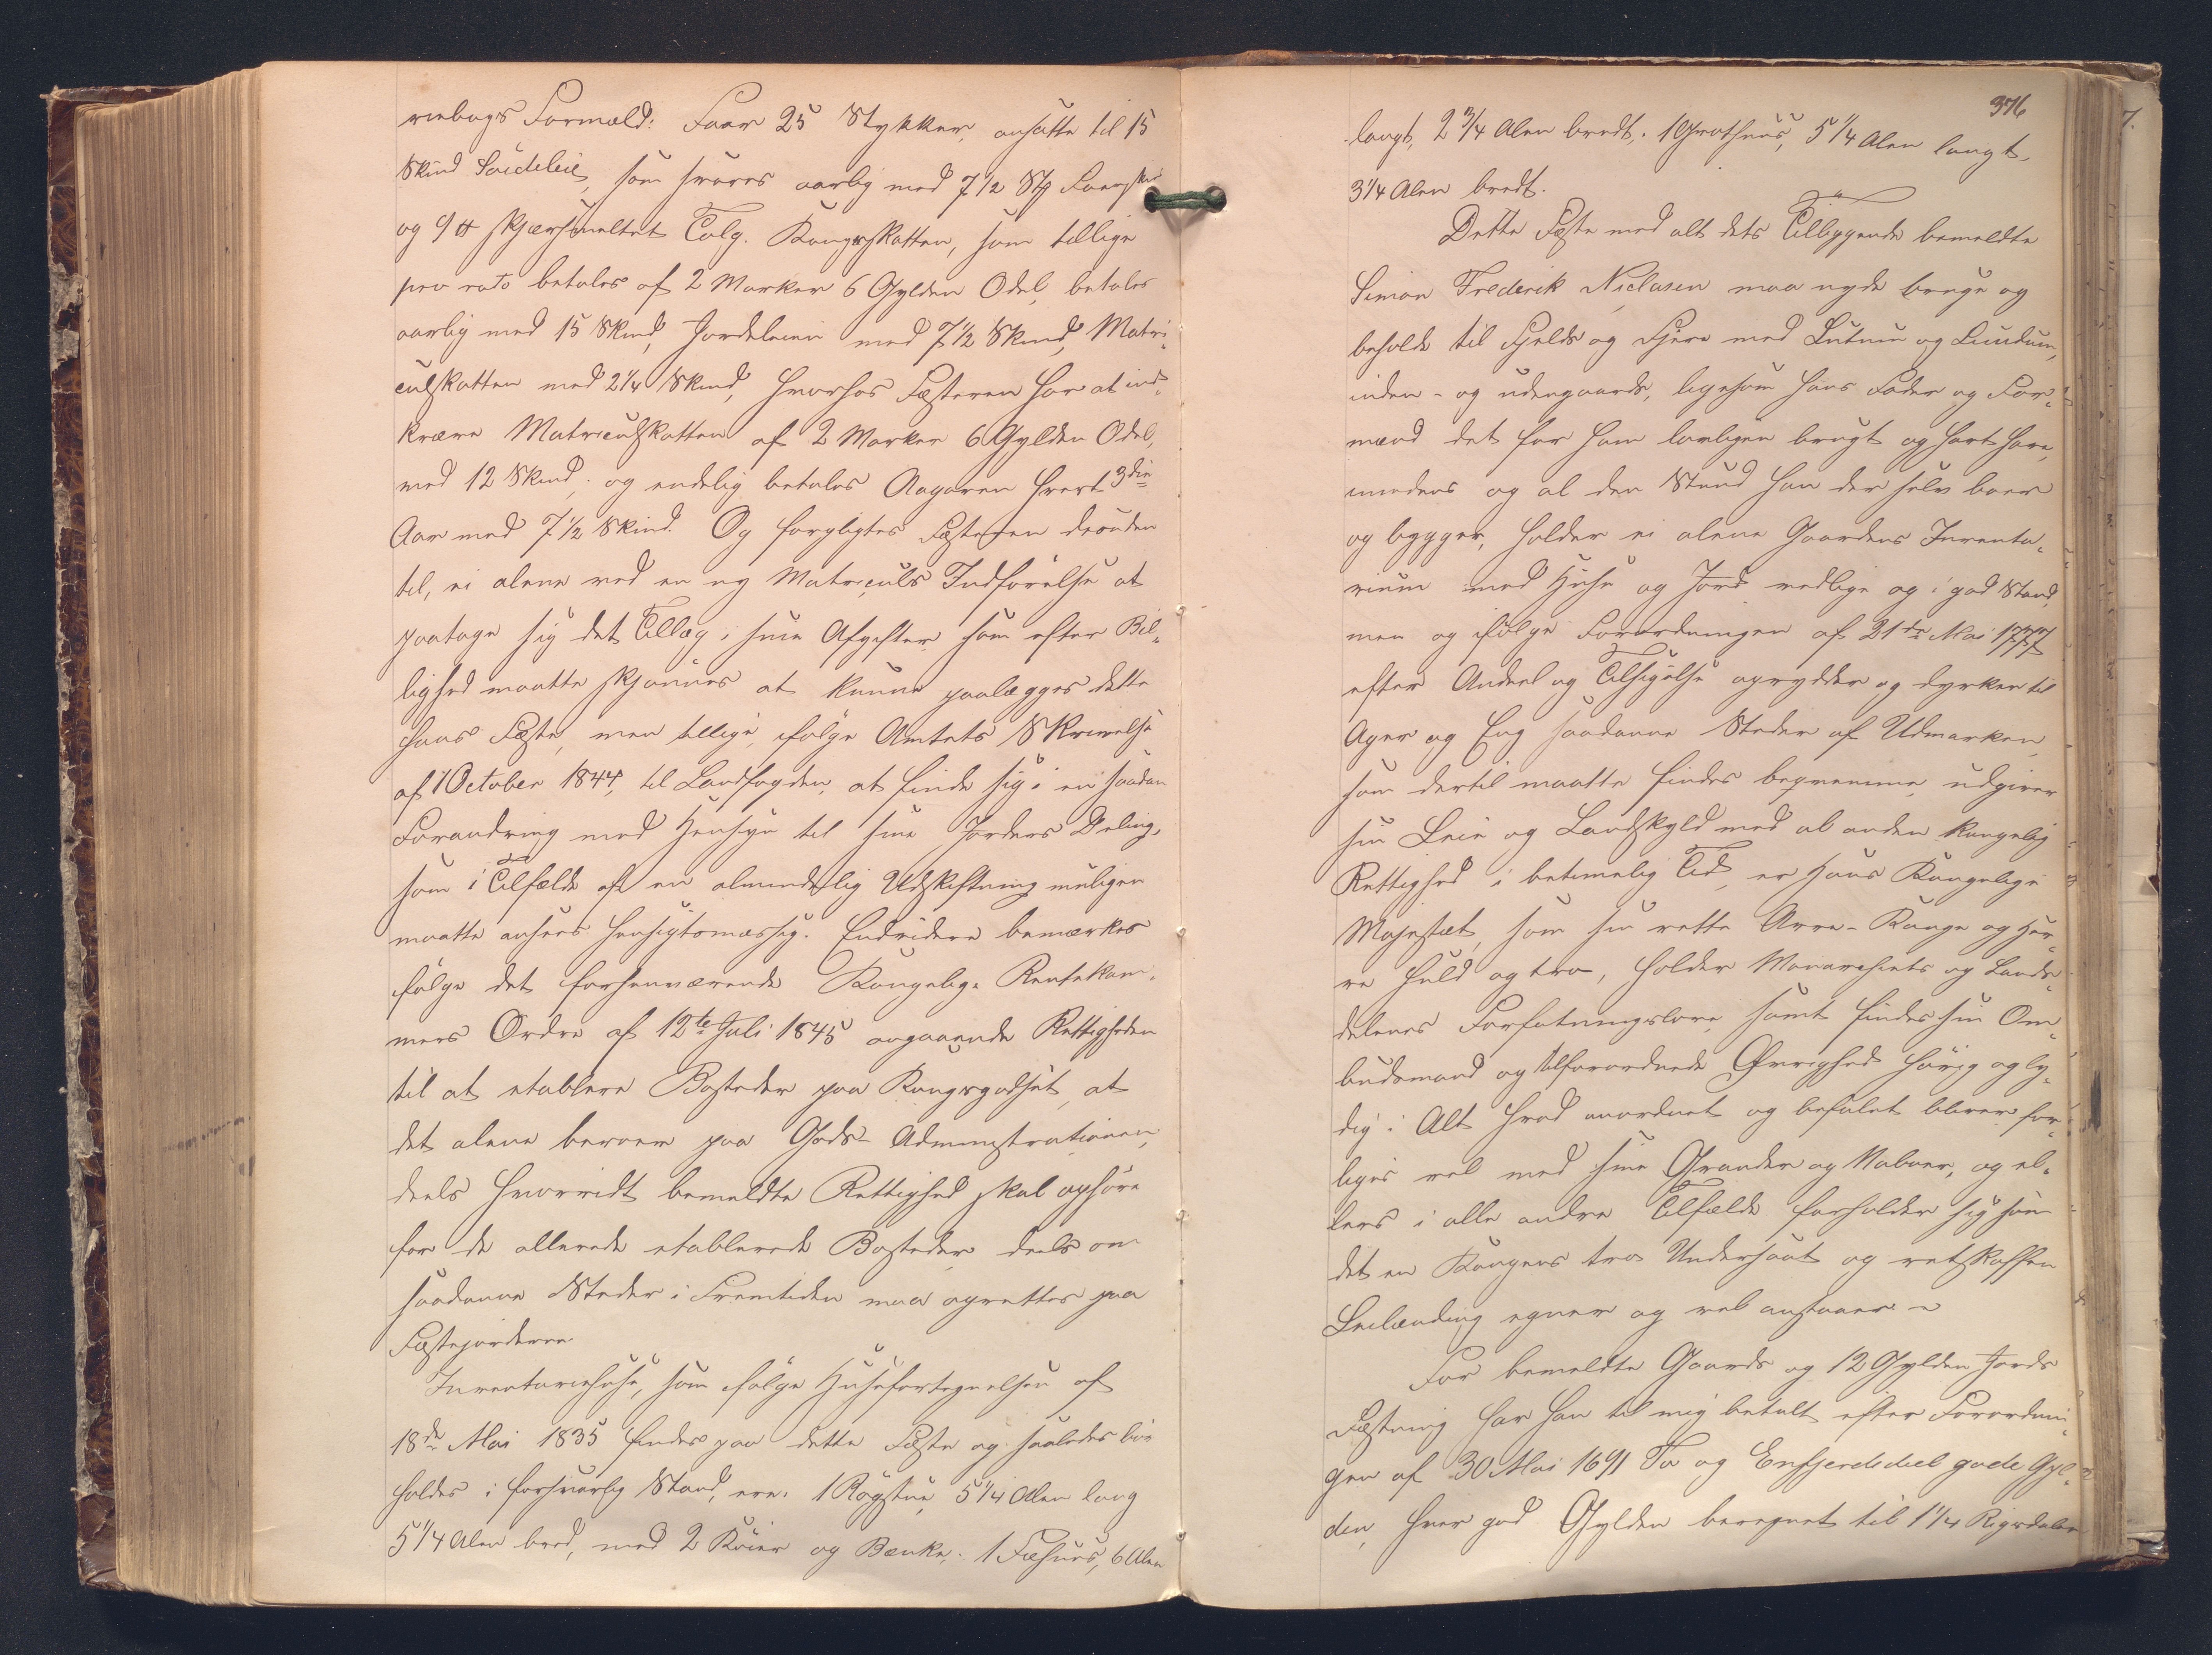 riebogs Formæld: Faar 25 Stykker, ansatte til 15
Skind Søideleie, som svares aarlig med 7 1/2 St Faareskind
og 9 ℔ skjærsmeltet Talg. Kongsskatten, som tillige
pro rato betales af 2 Marker 6 Gylden Odel, betales
aarlig med 15 Skind, Jordeleien med 7 1/2 Skind, Matri-
culskatten med 2 1/4 Skind, hvorhos Fæsteren har at ind-
kræve Matriculskatten af 2 Marker 6 Gylden Odel,
med 12 Skind; og endelig betales Aagaven hvert 3die
Aar med 7 1/2 Skind. Og forpligtes Fæsteren desuden
til, ei alene ved en ny Matriculs Indførelse at
paatage sig det Tillæg i sine Afgifter som efter Bil-
lighed maatte skjønnes at kunne paalægges dette
hans Fæste, men tillige, ifølge Amtets Skrivelse
af 1 October 1844, til Landfogden, at finde sig i en saadan
Forandring med Hensyn til sine Jorders Deling,
som i Tilfælde af en almindelig Udskiftning muligen
maatte ansees hensigtsmæssig. Endvidere bemærkes
ifølge det forhenværende Kongelige Rentekam-
mers Ordre af 12te Juli 1845 angaaende Rettigheden
til at etablere Bosteder paa Kongsgodset, at
det alene beroer paa Gods-Administrationen,
deels hvorvidt bemeldte Rettighed skal ophøre
for de allerede etablerede Bosteder, deels om
saadanne Steder i Fremtiden maa oprettes paa
Fæstejorderne
Inventariehuse, som ifølge Husefortegnelsen af
18de Mai 1835 findes paa dette Fæste og saaledes bør
holdes i forsvarlig Stand, ere: 1 Røgstue 5 1/4 Alen lang
5 1/4 Alen bred, med 2 Køier og Bænke; 1 Fæhuus, 6 Alen
376
langt, 2 3/4 Alen bredt; 1 Grothuus, 5 1/4 Alen langt,
3 1/4 Alen bredt.
Dette Fæste med alt dets Tilliggende bemeldte
Simon Frederik Niclasen maa nyde bruge og
beholde til Fjelds og Fjære med Lutum og Lundum,
inden- og udengaards, ligesom hans Fader og For-
mænd det før ham lovligen brugt og havt have,
imedens og al den Stund han der selv boer
og bygger, holder ei alene Gaardens Inventa-
rium med Huse og Jord vedlige og i god Stand,
men og ifølge Forordningen af 21de Mai 1777
efter Andeel og Tilsigelse oprydder og dyrker til
Ager og Eng saadanne Steder af Udmarken,
som dertil maatte findes beqvemme, udgiver
sin Leie og Landskyld med al anden kongelig
Rettighed i betimelig Tid, er Hans Kongelige
Majestæt, som sin rette Arve-Konge og Her-
re huld og tro, holder Monarchiets og Lands-
delenes Forfatningslove, samt findes sin Om-
budsmand og tilforordnede Øvrighed hørig og ly-
dig i Alt hvad anordnet og befalet bliver, for-
liges vel med sine Grander og Naboer, og el-
lers i alle andre Tilfælde forholder sig som
det en Kongens tro Undersaat og retskaffen
Leilænding egner og vel anstaaer. ~
For bemeldte Gaards og 12 Gylden Jords
Fæstning har han til mig betalt efter Forordnin-
gen af 30 Mai 1691 To og Enfjerdedeel gode Gyl-
den, hver god Gylden beregnet til 1 1/4 Rigsdaler